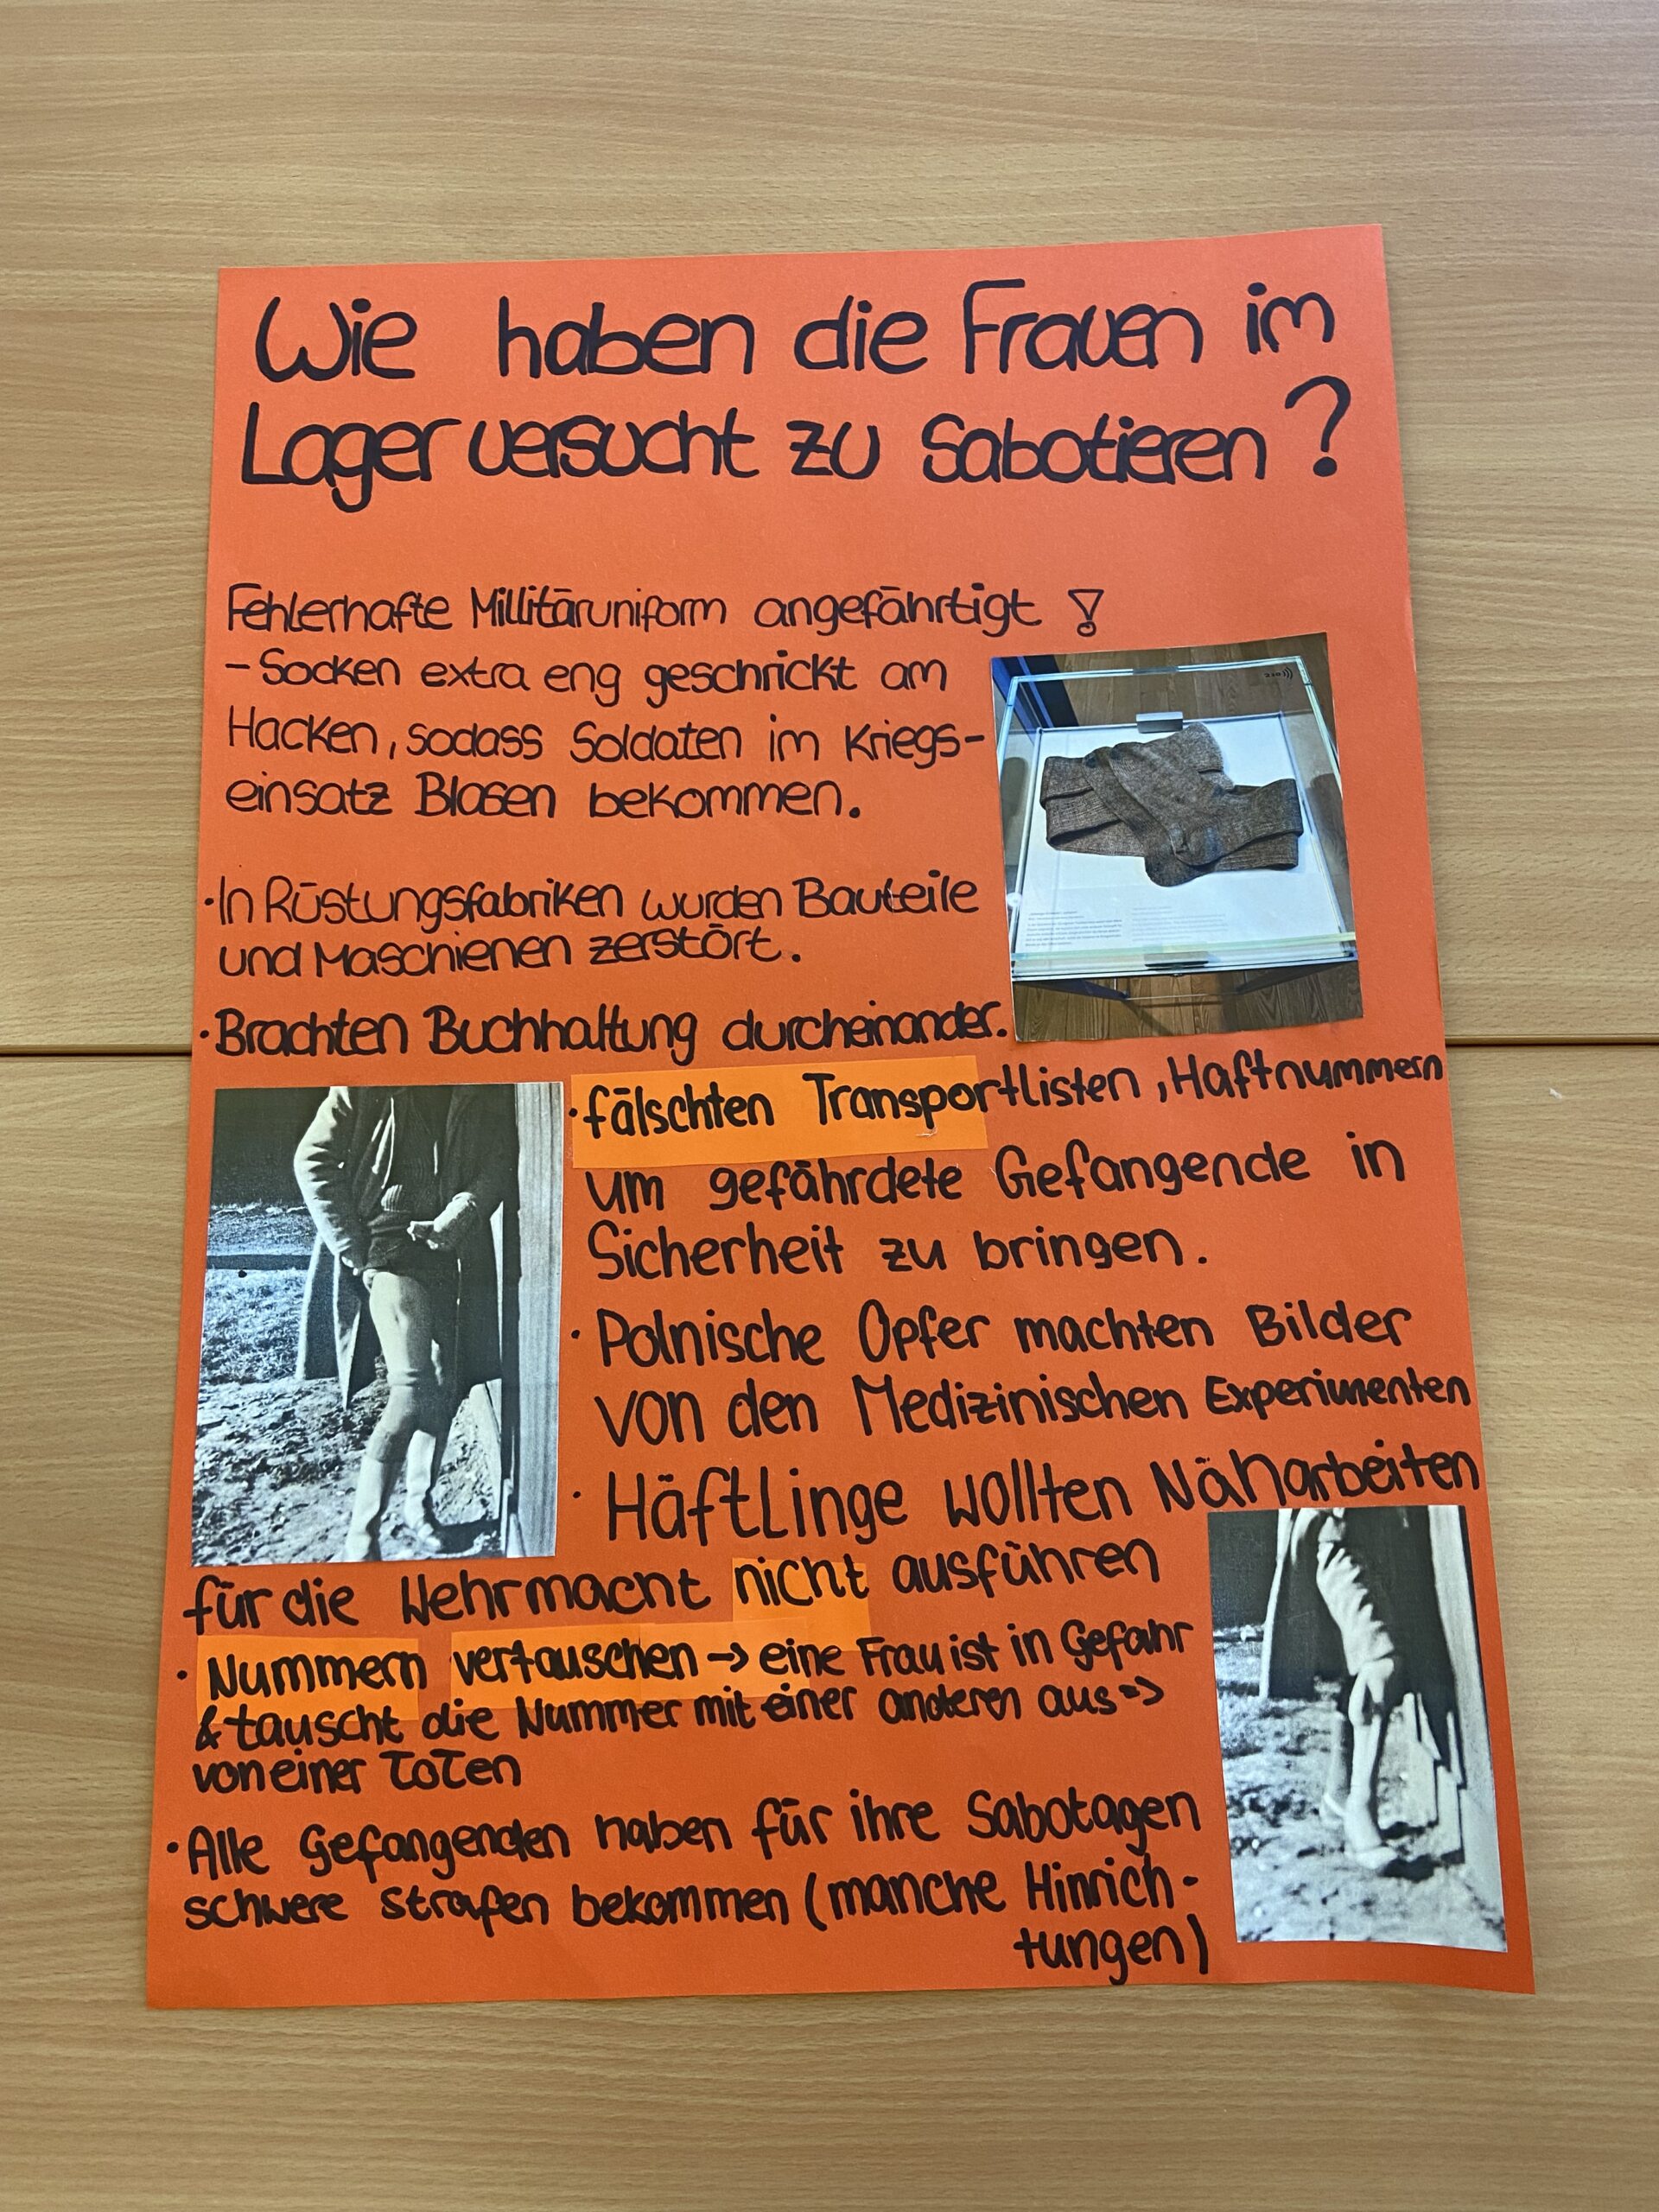 Wie haben die Frauen im
Lager versucht zu Sabotieren?
Fehlerhafte Millitäruniform angefährtigt !
- Socken extra eng geschrickt am
Hacken, sodass Soldaten im Kriegs-
einsatz Blasen bekommen.
· In Rüstungsfabriken wurden Bauteile
und Maschienen zerstört.
· Brachten Buchhaltung durcheinander.
· fälschten Transportlisten, Haftnummern
um gefährdete Gefangende in
Sicherheit zu bringen.
· Polnische Opfer machten Bilder
von den Medizinischen Experimenten
· Häftlinge wollten Näharbeiten
für die Wehrmacht nicht ausführen
· Nummern vertauschen -> eine Frau ist in Gefahr
& tauscht die Nummer mit einer anderen aus =>
von einer Toten
· Alle Gefangenden haben für ihre Sabotagen
schwere strafen bekommen (manche Hinrich-
tungen)